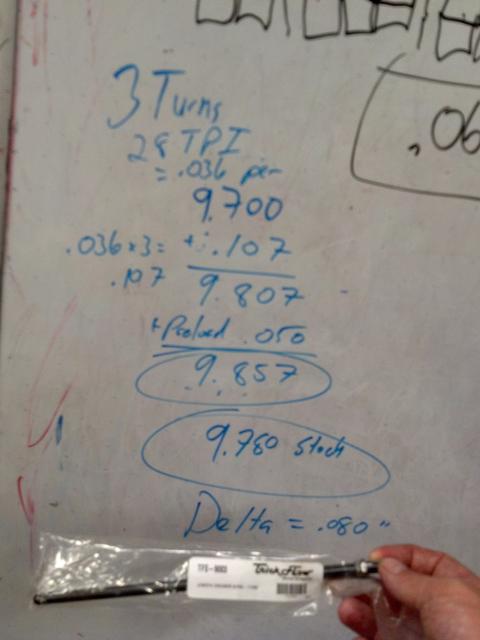 3 Turns
28 TPI
= .036 per
9.700
.036 x 3 = + .107
.107
9.807
+ Preload .050
9.857
9.780 Stock
Delta = .080"
.06
TFS-9003
Trick Flow